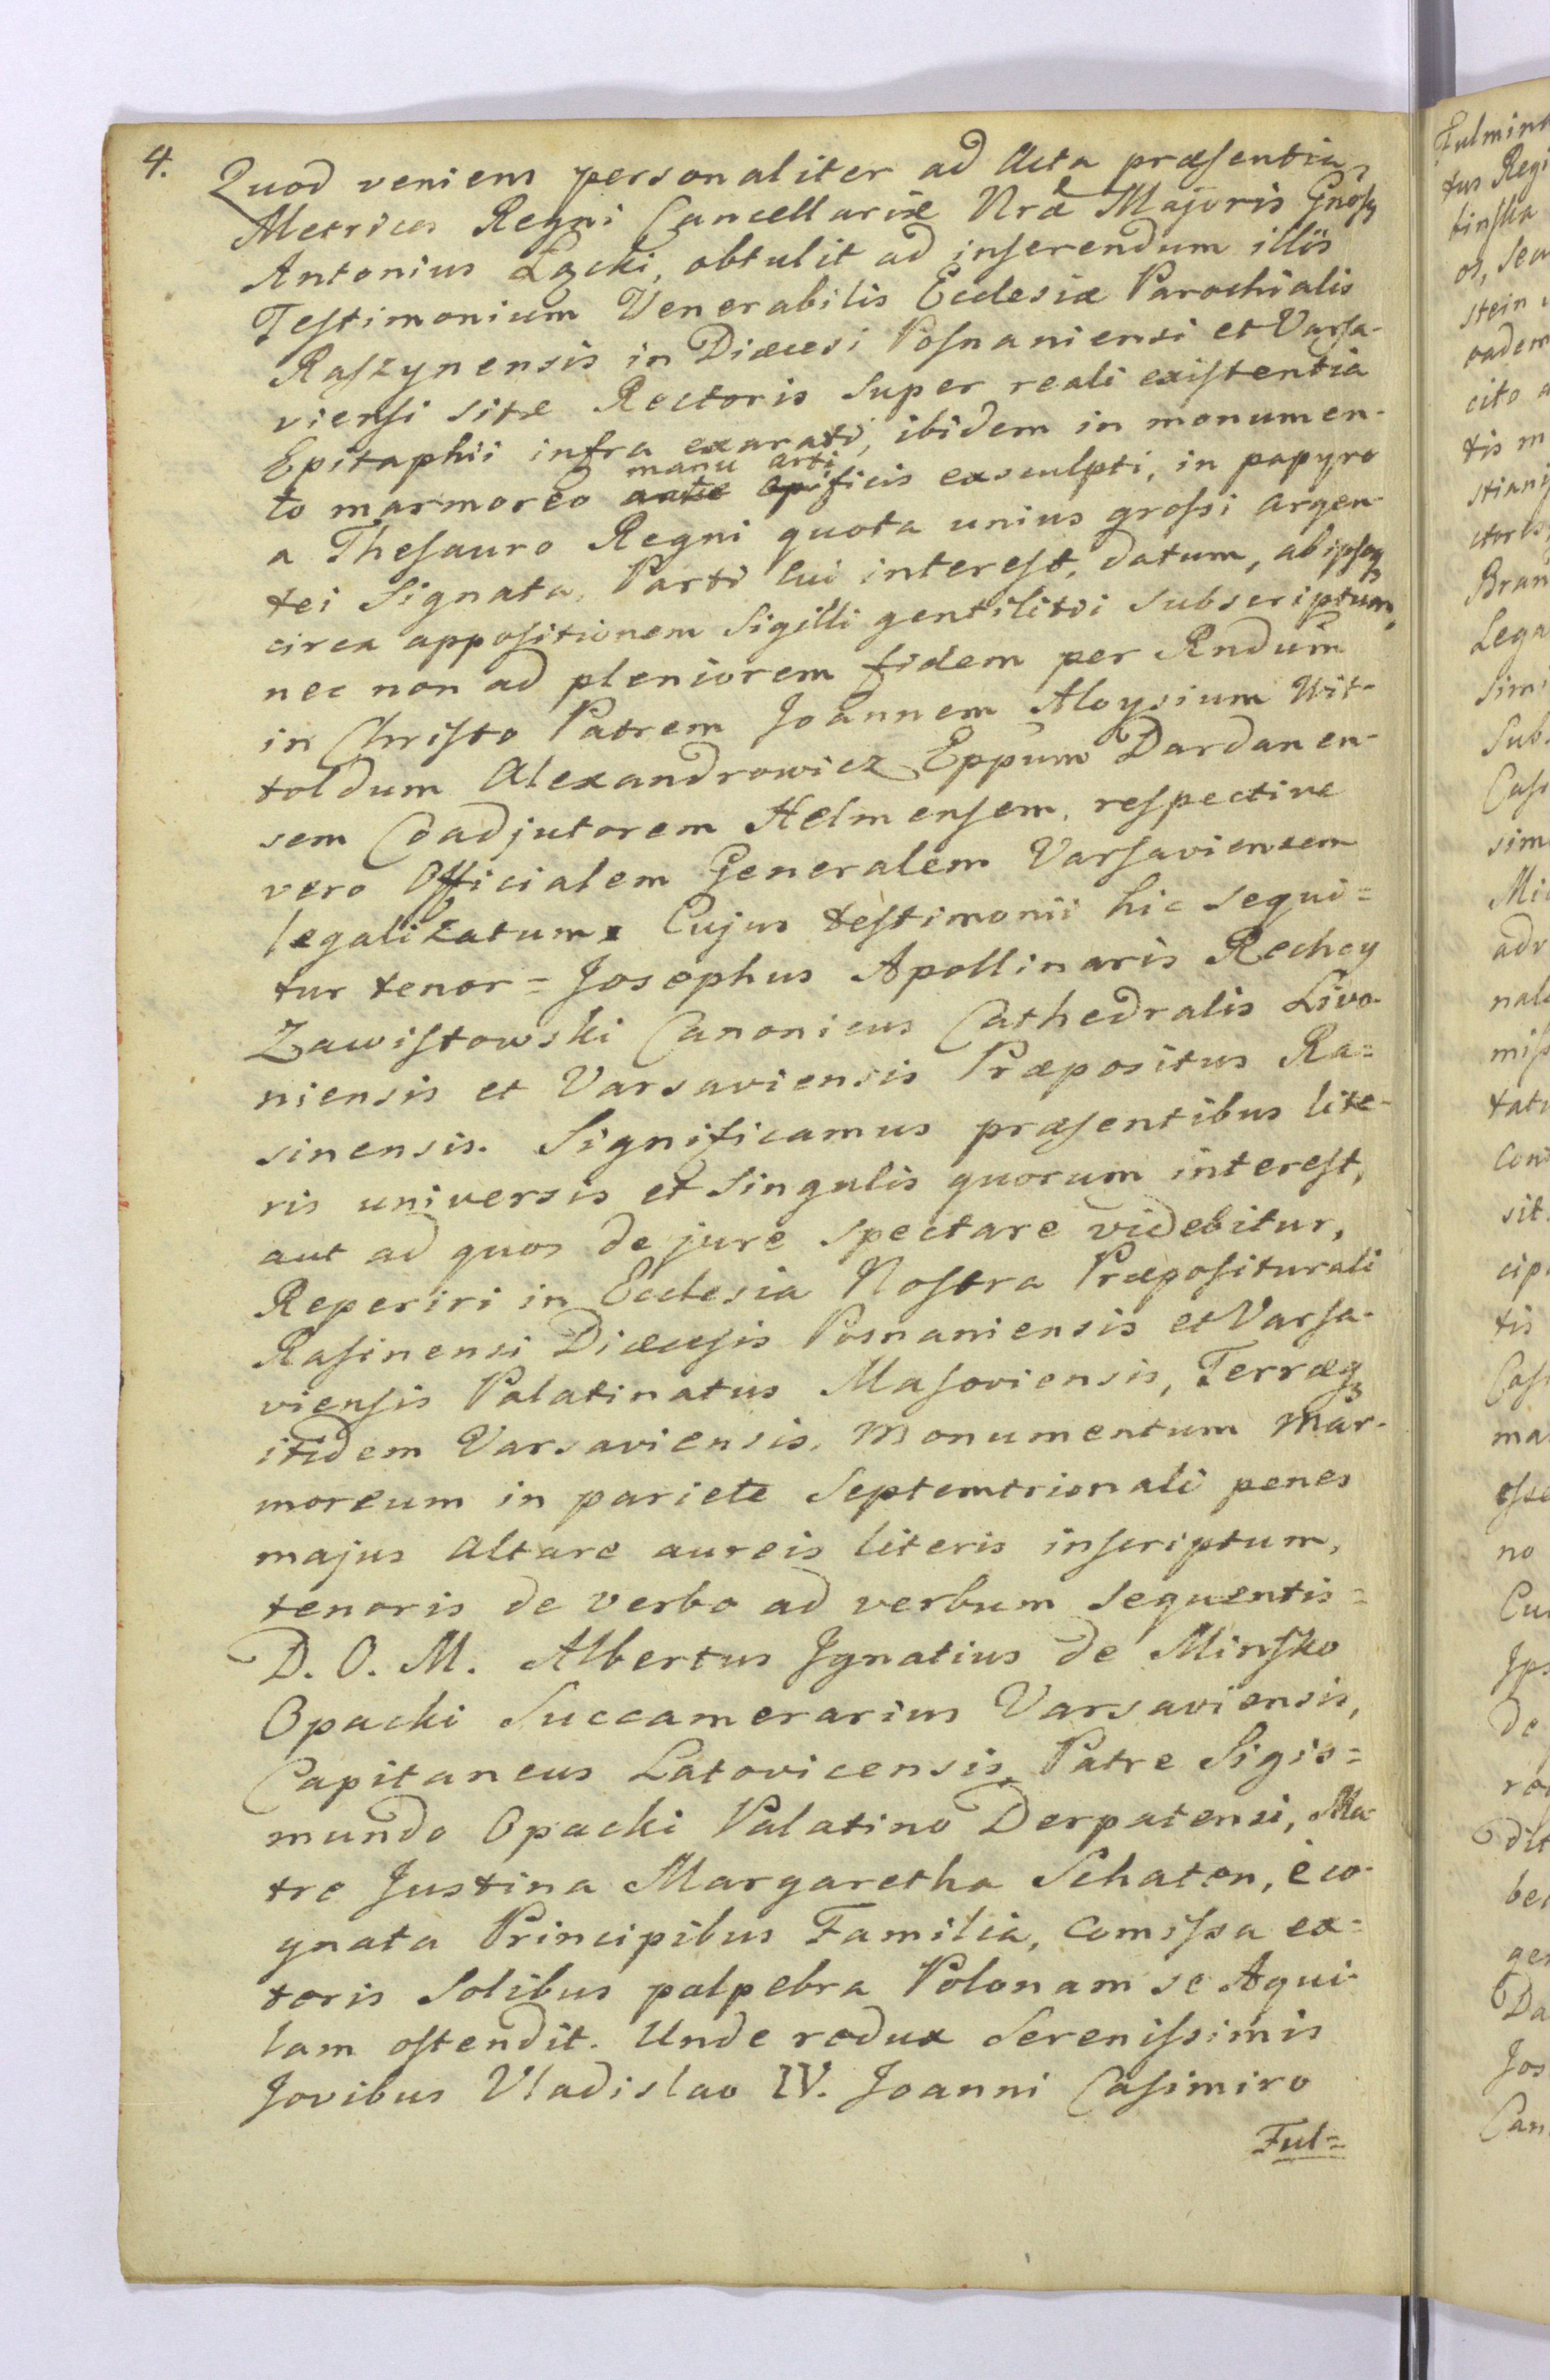 4.
Quod veniens personaliter ad Acta præsentia,
Metrices Regni Cancellariæ Nræ Majoris Gnosus
Antonius Łącki, obtulit ad inserendum illis
Testimonium Venerabilis Ecclesiæ Parochialis
Raszynensis in Diæcesi Posnaniensi et Varsa-
viensi sitæ Rectoris super reali existentia
Epitaphii infra exarati, ibidem in monumen-
manu arti
to marmoreo opificis exsculpti, in papyro
a Thesauro Regni quota unius grossi argen-
tei signata, Parti cui interest, datum, ab ipsoq
circa appositionem sigilli gentilitii subscriptum,
nec non ad pleniorem fidem per Rndum
in Christo Patrem Joannem Aloysium Wit-
toldum Alexandrowicz Eppum Dardanen-
sem Coadjutorem Helmensem, respective
vero Officialem Generalem Varsaviensem
legalizatum. Cujus testimonii hic sequi=
tur tenor = Josephus Apollinaris Rechcy
Zawistowski Canonicus Cathedralis Livo-
niensis et Varsaviensis Præpositus Ra=
sinensis. Significamus præsentibus lite-
ris universis et singulis quorum interest,
aut ad quos de jure spectare videbitur,
Reperiri in Ecclesia Nostra Præpositurali
Rasinensi Diæcesis Posnaniensis et Varsa-
viensis Palatinatus Masoviensis, Terræq
itidem Varsaviensis, Monumentum mar-
moreum in pariete Septemtrionali penes
majus Altare aureis literis inscriptum,
tenoris de verbo ad verbum sequentis =
D. O. M. Albertus Jgnatius de Minsko
Opacki Succamerarius Varsaviensis,
Capitaneus Latovicensis, Patre Sigis=
mundo Opacki Palatino Derpatensi, Ma-
tre Justina Margaretha Schaten, è co-
gnata Principibus Familia, comissa ex=
teris Solibus palpebra Polonam se Aqui-
lam ostendit. Unde redux Serenissimis
Jovibus Vladislao IV. Joanni Casimiro
Ful=